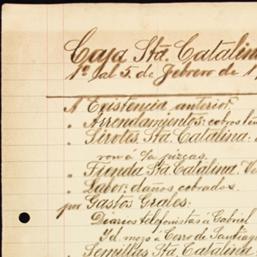 Caja Sta. Catalina
1º al 5 de Febrero de 1
A Existencia anterior
" Arrendamientos: cobros
" Sirotes Sta Catalina:
" Tienda Sta Catalina. V
" Labor: daños cobrados.
por Gastos Grales:
Diarios telefonistas á Gabriel
Yd. mozo á Cerro de Santiag
Semillas Sta Catalina